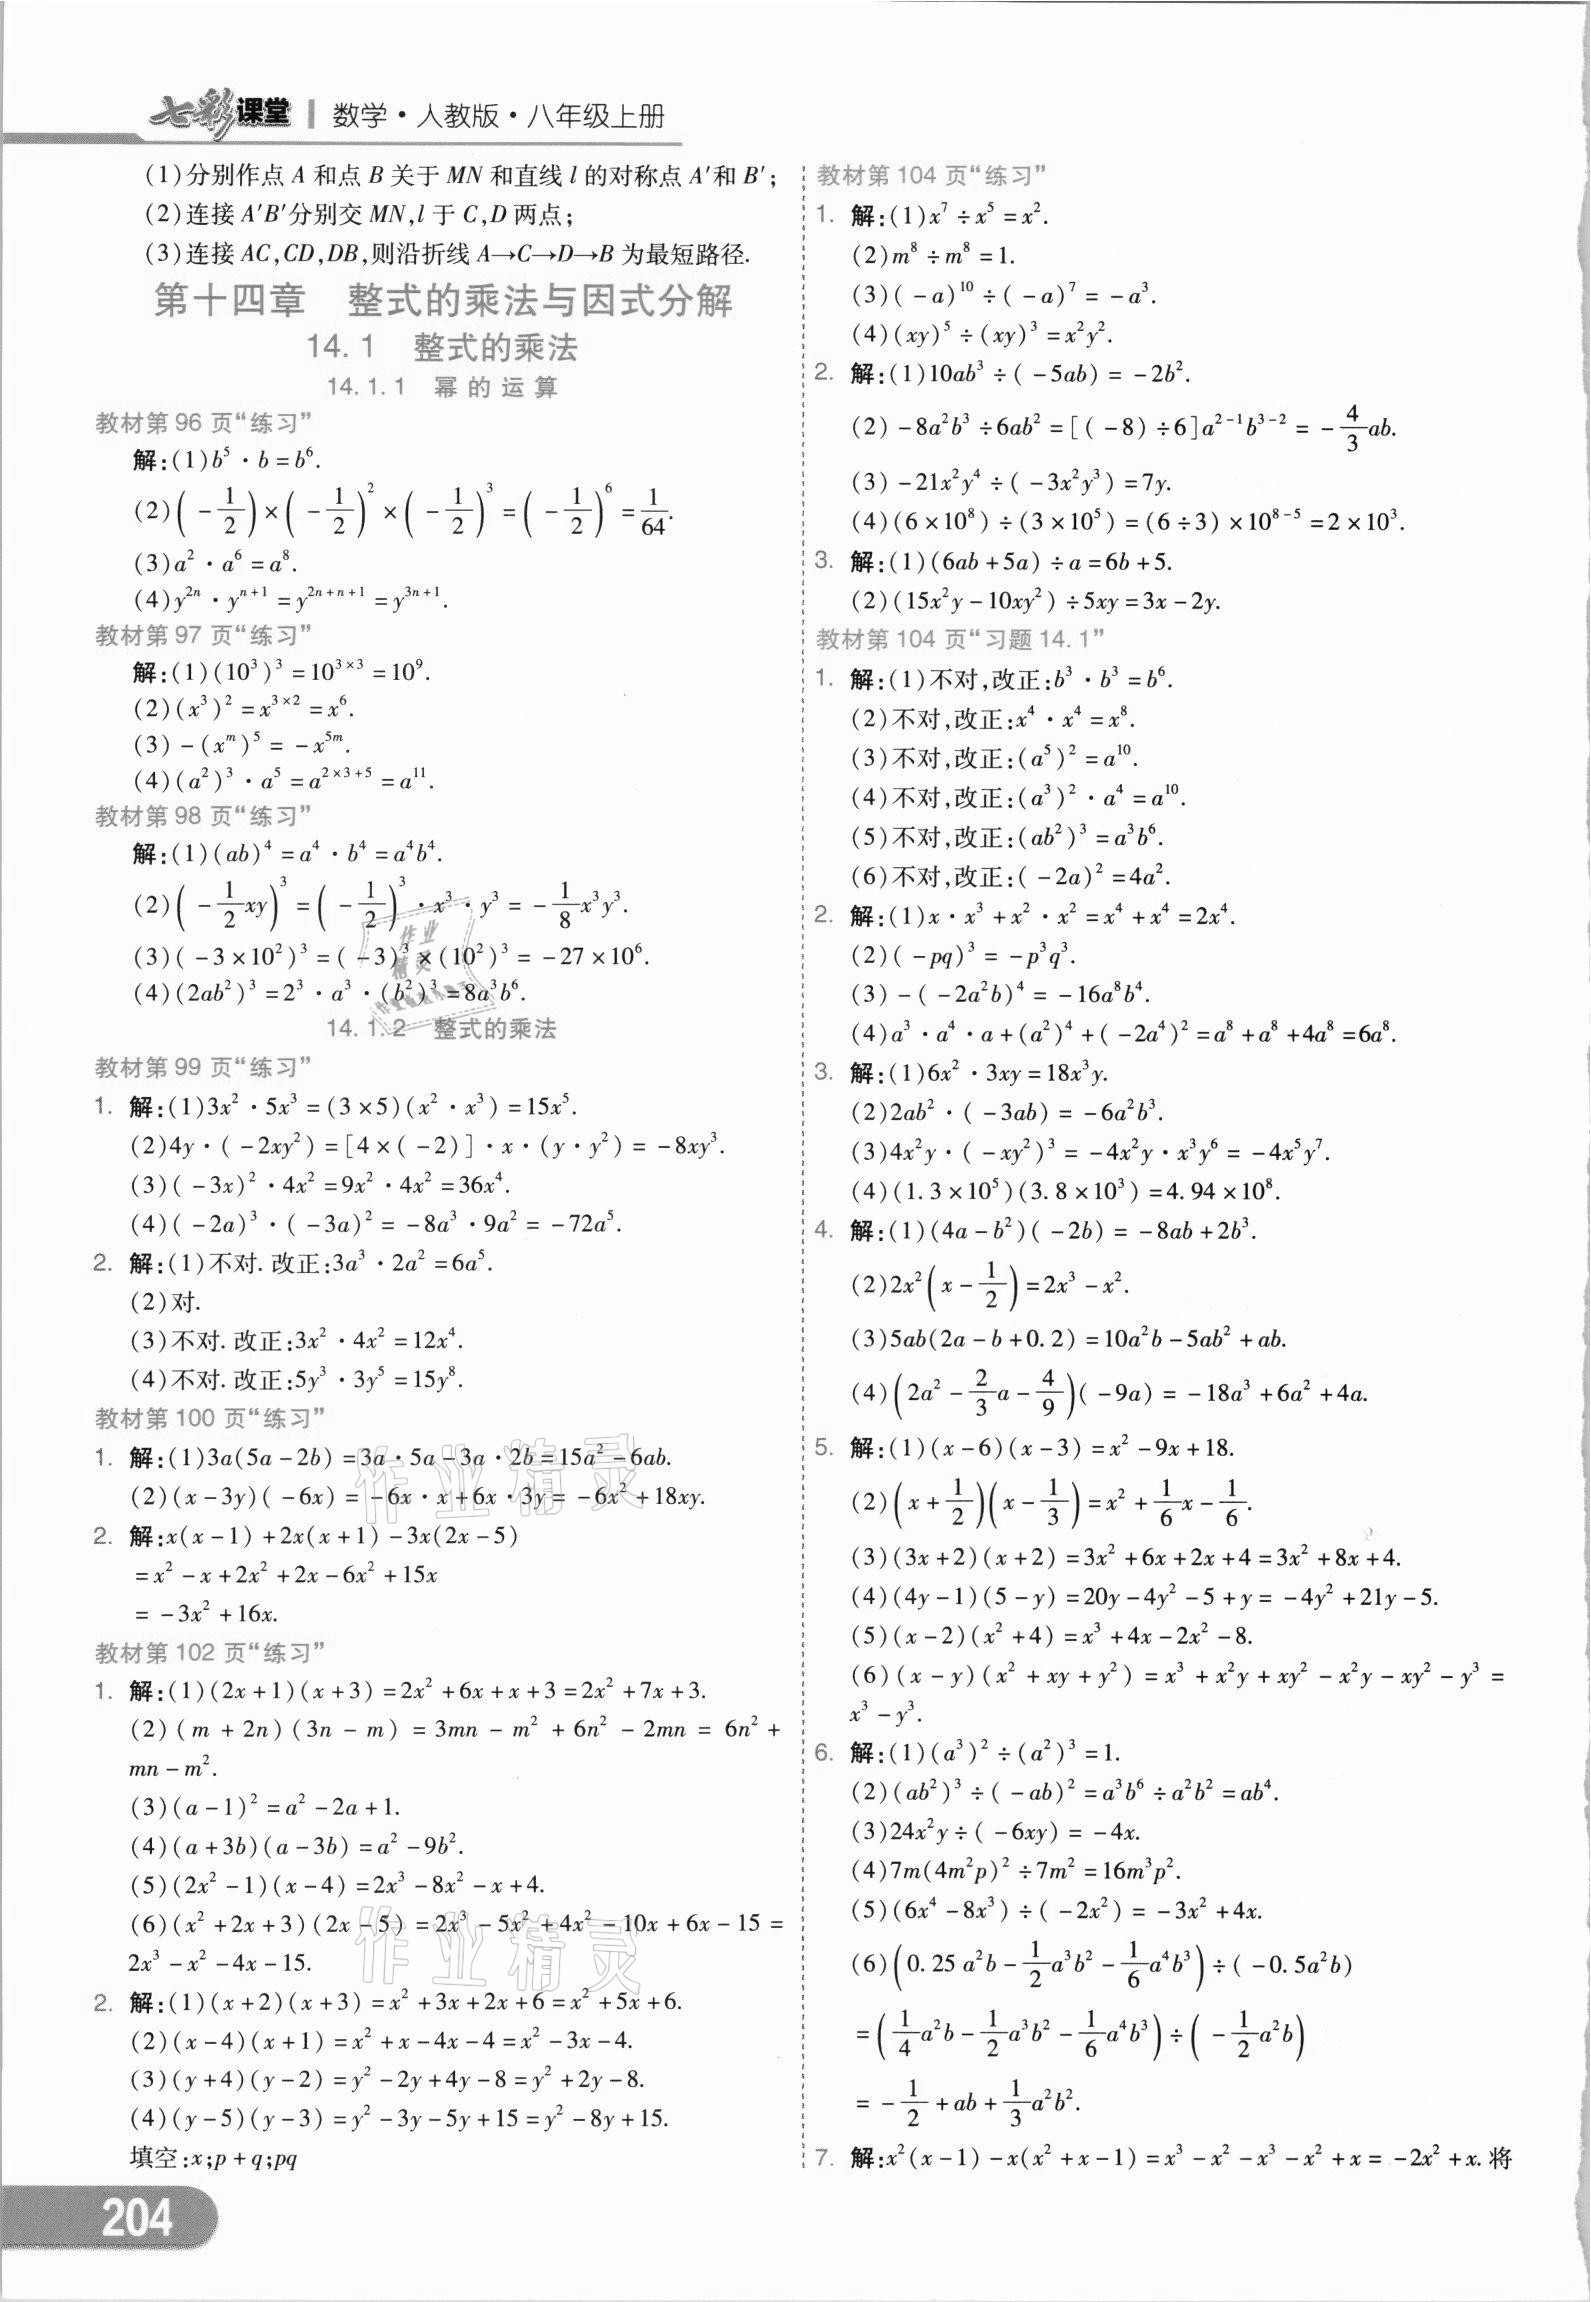 七彩课堂 | 数学·人教版·八年级上册
(1)分别作点 A 和点 B 关于 MN 和直线 l 的对称点 A′和 B′;
(2)连接 A′B′分别交 MN,l 于 C,D 两点;
(3)连接 AC,CD,DB,则沿折线 A→C→D→B 为最短路径.
第十四章 整式的乘法与因式分解
14.1 整式的乘法
14.1.1 幂的运算
教材第 96 页“练习”
解:(1)b⁵·b=b⁶.
(2)(-1/2)×(-1/2)²×(-1/2)³=(-1/2)⁶=1/64.
(3)a²·a⁶=a⁸.
(4)y²ⁿ·yⁿ⁺¹=y²ⁿ⁺ⁿ⁺¹=y³ⁿ⁺¹.
教材第 97 页“练习”
解:(1)(10³)³=10³ˣ³=10⁹.
(2)(x³)²=x³ˣ²=x⁶.
(3)-(xᵐ)⁵=-x⁵ᵐ.
(4)(a²)³·a⁵=a²ˣ³⁺⁵=a¹¹.
教材第 98 页“练习”
解:(1)(ab)⁴=a⁴·b⁴=a⁴b⁴.
(2)(-1/2xy)³=(-1/2)³·x³·y³=-1/8x³y³.
(3)(-3×10²)³=(-3)³×(10²)³=-27×10⁶.
(4)(2ab²)³=2³·a³·(b²)³=8a³b⁶.
14.1.2 整式的乘法
教材第 99 页“练习”
1. 解:(1)3x²·5x³=(3×5)(x²·x³)=15x⁵.
(2)4y·(-2xy²)=[4×(-2)]·x·(y·y²)=-8xy³.
(3)(-3x)²·4x²=9x²·4x²=36x⁴.
(4)(-2a)³·(-3a)²=-8a³·9a²=-72a⁵.
2. 解:(1)不对.改正:3a³·2a²=6a⁵.
(2)对.
(3)不对.改正:3x²·4x²=12x⁴.
(4)不对.改正:5y³·3y⁵=15y⁸.
教材第 100 页“练习”
1. 解:(1)3a(5a-2b)=3a·5a-3a·2b=15a²-6ab.
(2)(x-3y)(-6x)=-6x·x+6x·3y=-6x²+18xy.
2. 解:x(x-1)+2x(x+1)-3x(2x-5)
=x²-x+2x²+2x-6x²+15x
=-3x²+16x.
教材第 102 页“练习”
1. 解:(1)(2x+1)(x+3)=2x²+6x+x+3=2x²+7x+3.
(2)(m+2n)(3n-m)=3mn-m²+6n²-2mn=6n²+
mn-m².
(3)(a-1)²=a²-2a+1.
(4)(a+3b)(a-3b)=a²-9b².
(5)(2x²-1)(x-4)=2x³-8x²-x+4.
(6)(x²+2x+3)(2x-5)=2x³-5x²+4x²-10x+6x-15=
2x³-x²-4x-15.
2. 解:(1)(x+2)(x+3)=x²+3x+2x+6=x²+5x+6.
(2)(x-4)(x+1)=x²+x-4x-4=x²-3x-4.
(3)(y+4)(y-2)=y²-2y+4y-8=y²+2y-8.
(4)(y-5)(y-3)=y²-3y-5y+15=y²-8y+15.
填空:x;p+q;pq
204
教材第 104 页“练习”
1. 解:(1)x⁷÷x⁵=x².
(2)m⁸÷m⁸=1.
(3)(-a)¹⁰÷(-a)⁷=-a³.
(4)(xy)⁵÷(xy)³=x²y².
2. 解:(1)10ab³÷(-5ab)=-2b².
(2)-8a²b³÷6ab²=[(-8)÷6]a²⁻¹b³⁻²=-4/3ab.
(3)-21x²y⁴÷(-3x²y³)=7y.
(4)(6×10⁸)÷(3×10⁵)=(6÷3)×10⁸⁻⁵=2×10³.
3. 解:(1)(6ab+5a)÷a=6b+5.
(2)(15x²y-10xy²)÷5xy=3x-2y.
教材第 104 页“习题 14.1”
1. 解:(1)不对,改正:b³·b³=b⁶.
(2)不对,改正:x⁴·x⁴=x⁸.
(3)不对,改正:(a⁵)²=a¹⁰.
(4)不对,改正:(a³)²·a⁴=a¹⁰.
(5)不对,改正:(ab²)³=a³b⁶.
(6)不对,改正:(-2a)²=4a².
2. 解:(1)x·x³+x²·x²=x⁴+x⁴=2x⁴.
(2)(-pq)³=-p³q³.
(3)-(-2a²b)⁴=-16a⁸b⁴.
(4)a³·a⁴·a+(a²)⁴+(-2a⁴)²=a⁸+a⁸+4a⁸=6a⁸.
3. 解:(1)6x²·3xy=18x³y.
(2)2ab²·(-3ab)=-6a²b³.
(3)4x²y·(-xy²)³=-4x²y·x³y⁶=-4x⁵y⁷.
(4)(1.3×10⁵)(3.8×10³)=4.94×10⁸.
4. 解:(1)(4a-b²)(-2b)=-8ab+2b³.
(2)2x²(x-1/2)=2x³-x².
(3)5ab(2a-b+0.2)=10a²b-5ab²+ab.
(4)(2a²-2/3a-4/9)(-9a)=-18a³+6a²+4a.
5. 解:(1)(x-6)(x-3)=x²-9x+18.
(2)(x+1/2)(x-1/3)=x²+1/6x-1/6.
(3)(3x+2)(x+2)=3x²+6x+2x+4=3x²+8x+4.
(4)(4y-1)(5-y)=20y-4y²-5+y=-4y²+21y-5.
(5)(x-2)(x²+4)=x³+4x-2x²-8.
(6)(x-y)(x²+xy+y²)=x³+x²y+xy²-x²y-xy²-y³=
x³-y³.
6. 解:(1)(a³)²÷(a²)³=1.
(2)(ab²)³÷(-ab)²=a³b⁶÷a²b²=ab⁴.
(3)24x²y÷(-6xy)=-4x.
(4)7m(4m²p)²÷7m²=16m³p².
(5)(6x⁴-8x³)÷(-2x²)=-3x²+4x.
(6)(0.25a²b-1/2a³b²-1/6a⁴b³)÷(-0.5a²b)
=(1/4a²b-1/2a³b²-1/6a⁴b³)÷(-1/2a²b)
=-1/2+ab+1/3a²b².
7. 解:x²(x-1)-x(x²+x-1)=x³-x²-x³-x²+x=-2x²+x.将
作业精灵
作业精灵
作业精灵